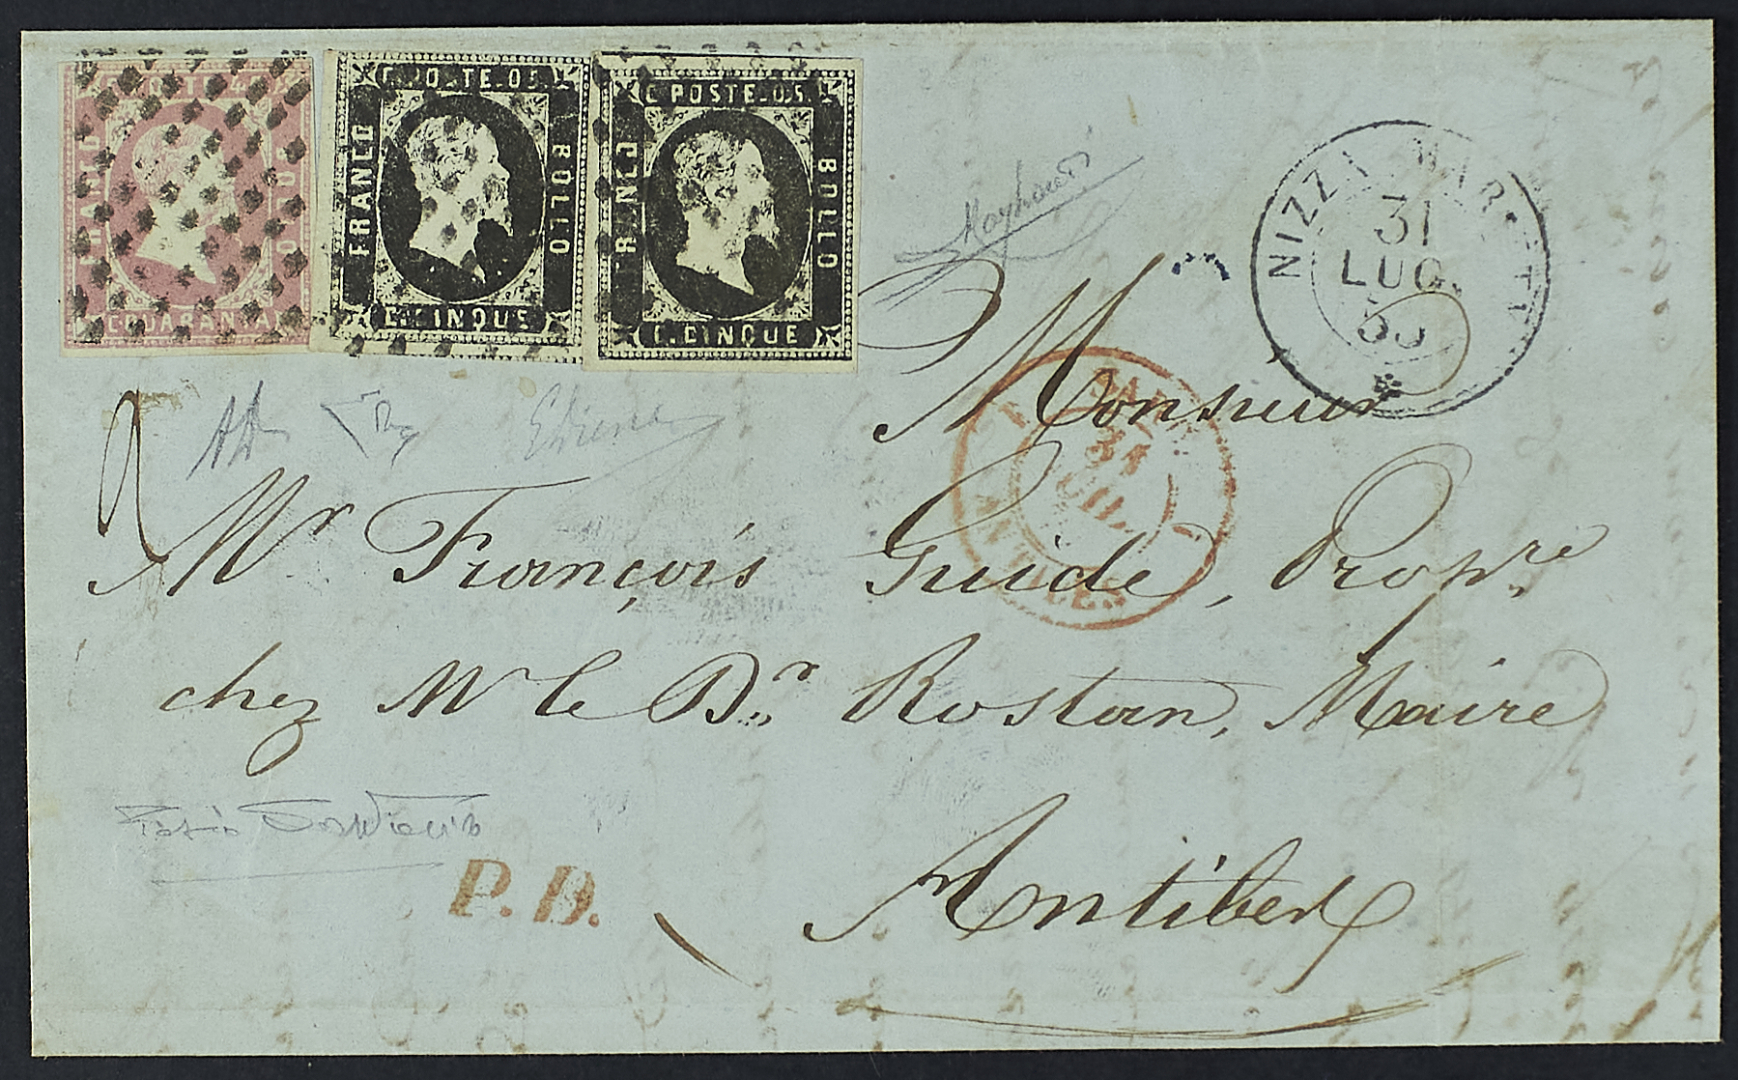 C. POSTE. 05
FRANCO
BOLLO
C. CINQUE
C. POSTE. 05.
FRANCO
BOLLO
C. CINQUE
FRANCO
C. QUARANTA
NIZZA MARITT
31
LUG.
53
31
JUIL
ANTIBES
Monsieur
Mr. François Guide, Propre.
chez Mr le Dr. Rostan, Maire
P.D.
Antibes